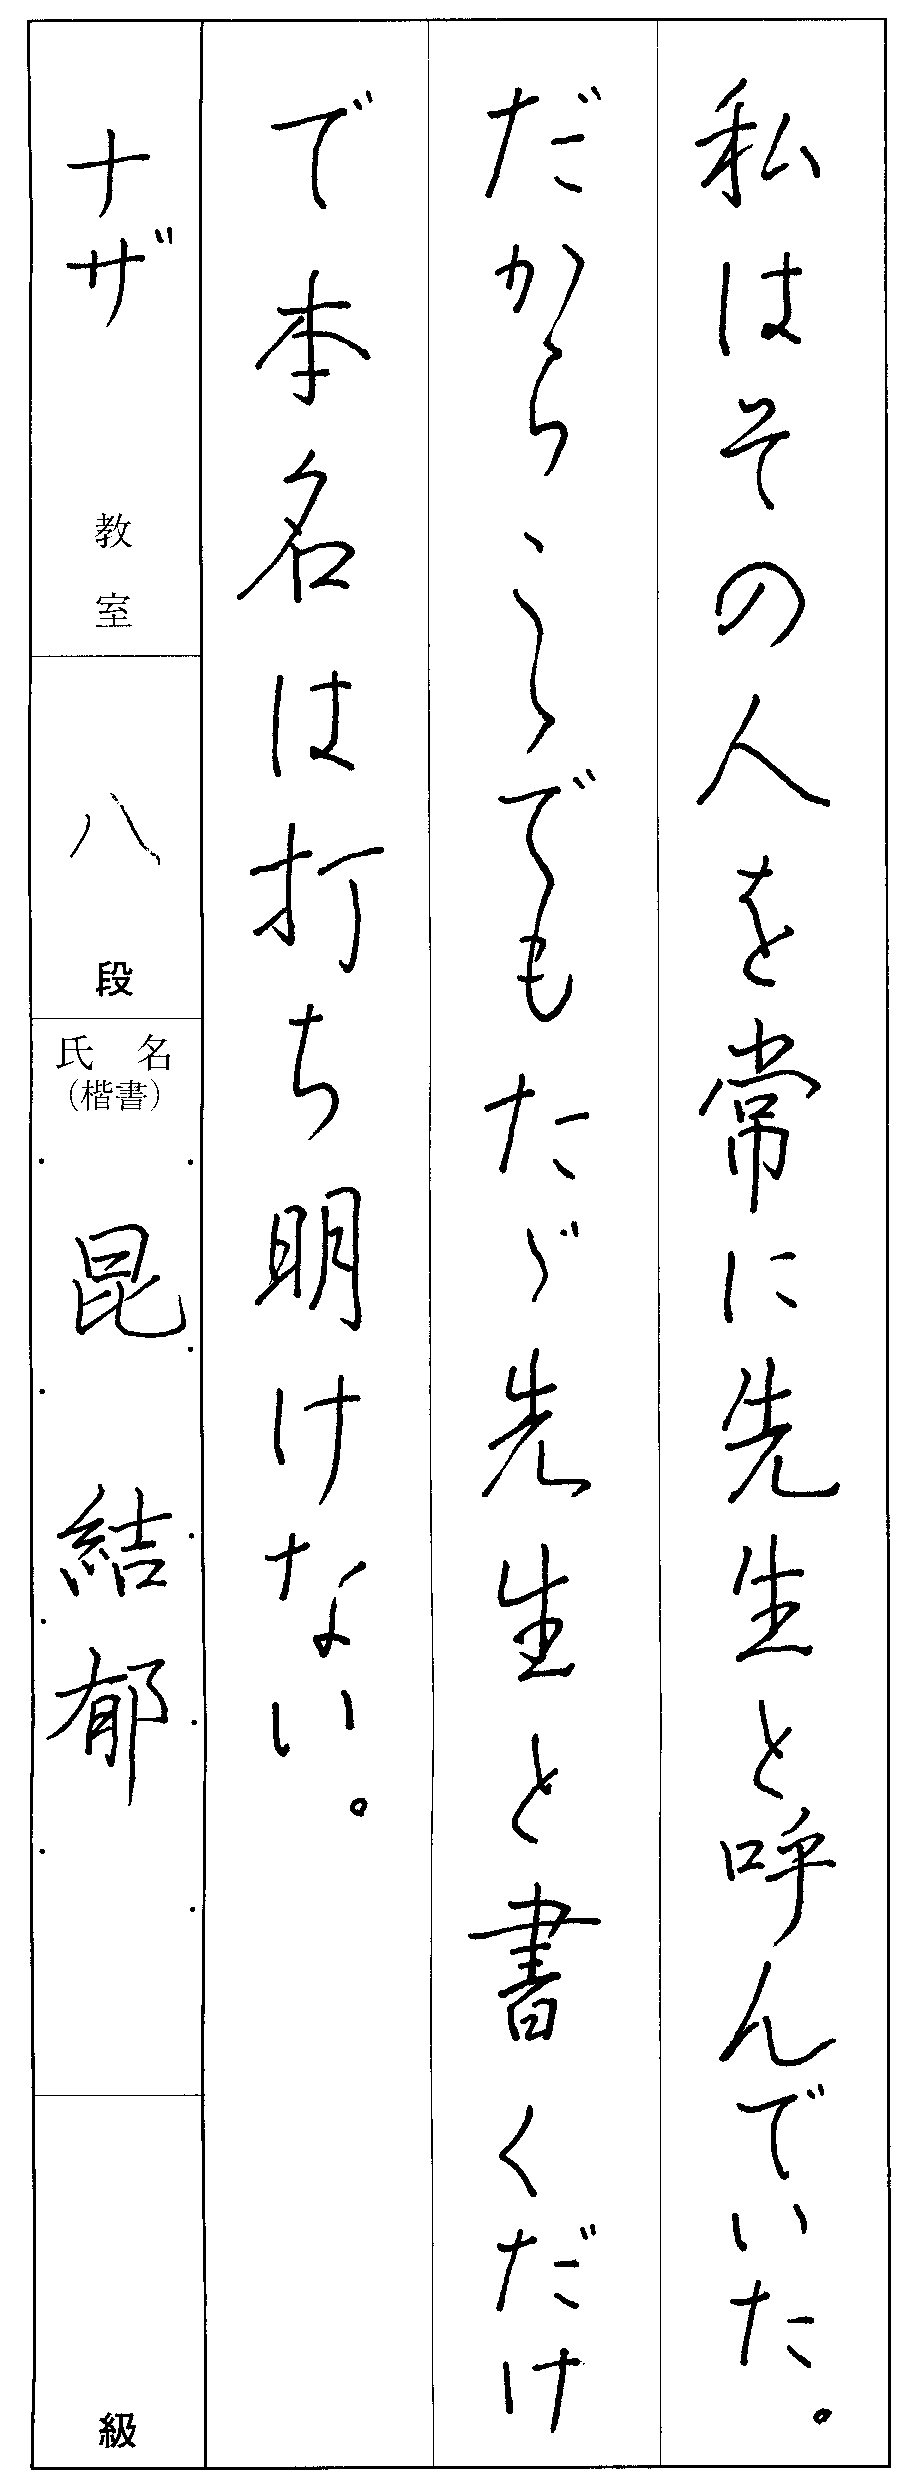 私はその人を常に先生と呼んでいた。
だからこゝでもたゞ先生と書くだけ
で本名は打ち明けない。
ナザ 教室
八 段
氏名
(楷書)
昆 結郁
級